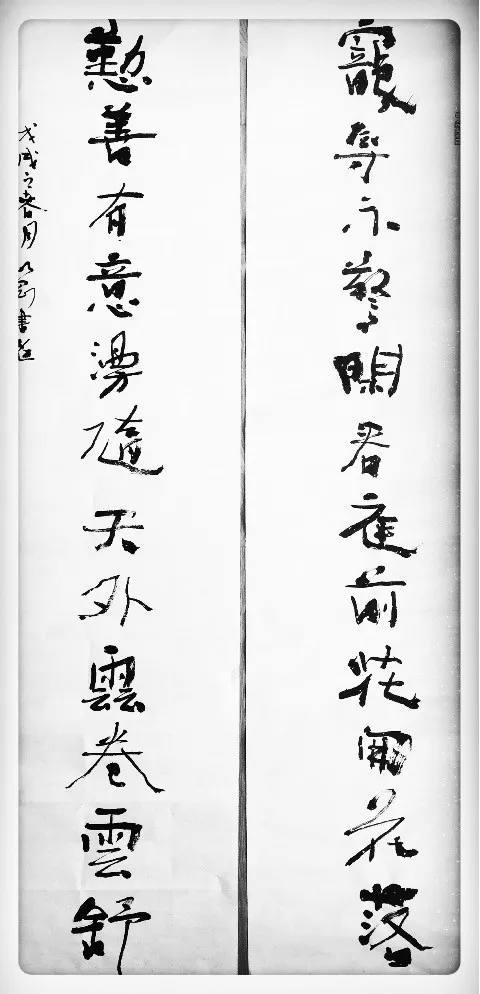 寵辱亦驚閑看庭前開花落
懃善有意漫隨天外雲卷雲舒
戊戌之春月書